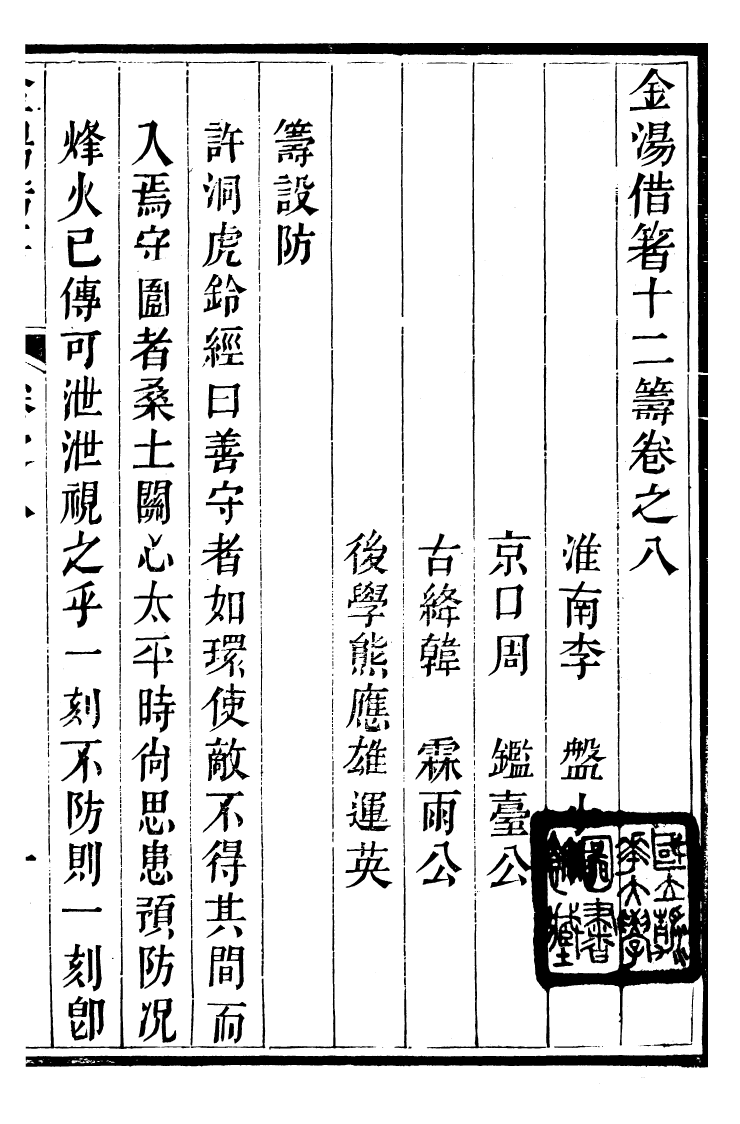 金湯借箸十二籌卷之八
淮南李　盤小
京口周　鑑臺公
古絳韓　霖雨公
後學熊應雄運英
籌設防
許洞虎鈐經曰善守者如環使敵不得其間而
入焉守圉者桑土關心太平時尙思患預防况
烽火已傳可泄泄視之乎一刻不防則一刻卽
國立清華大學
圖書館藏